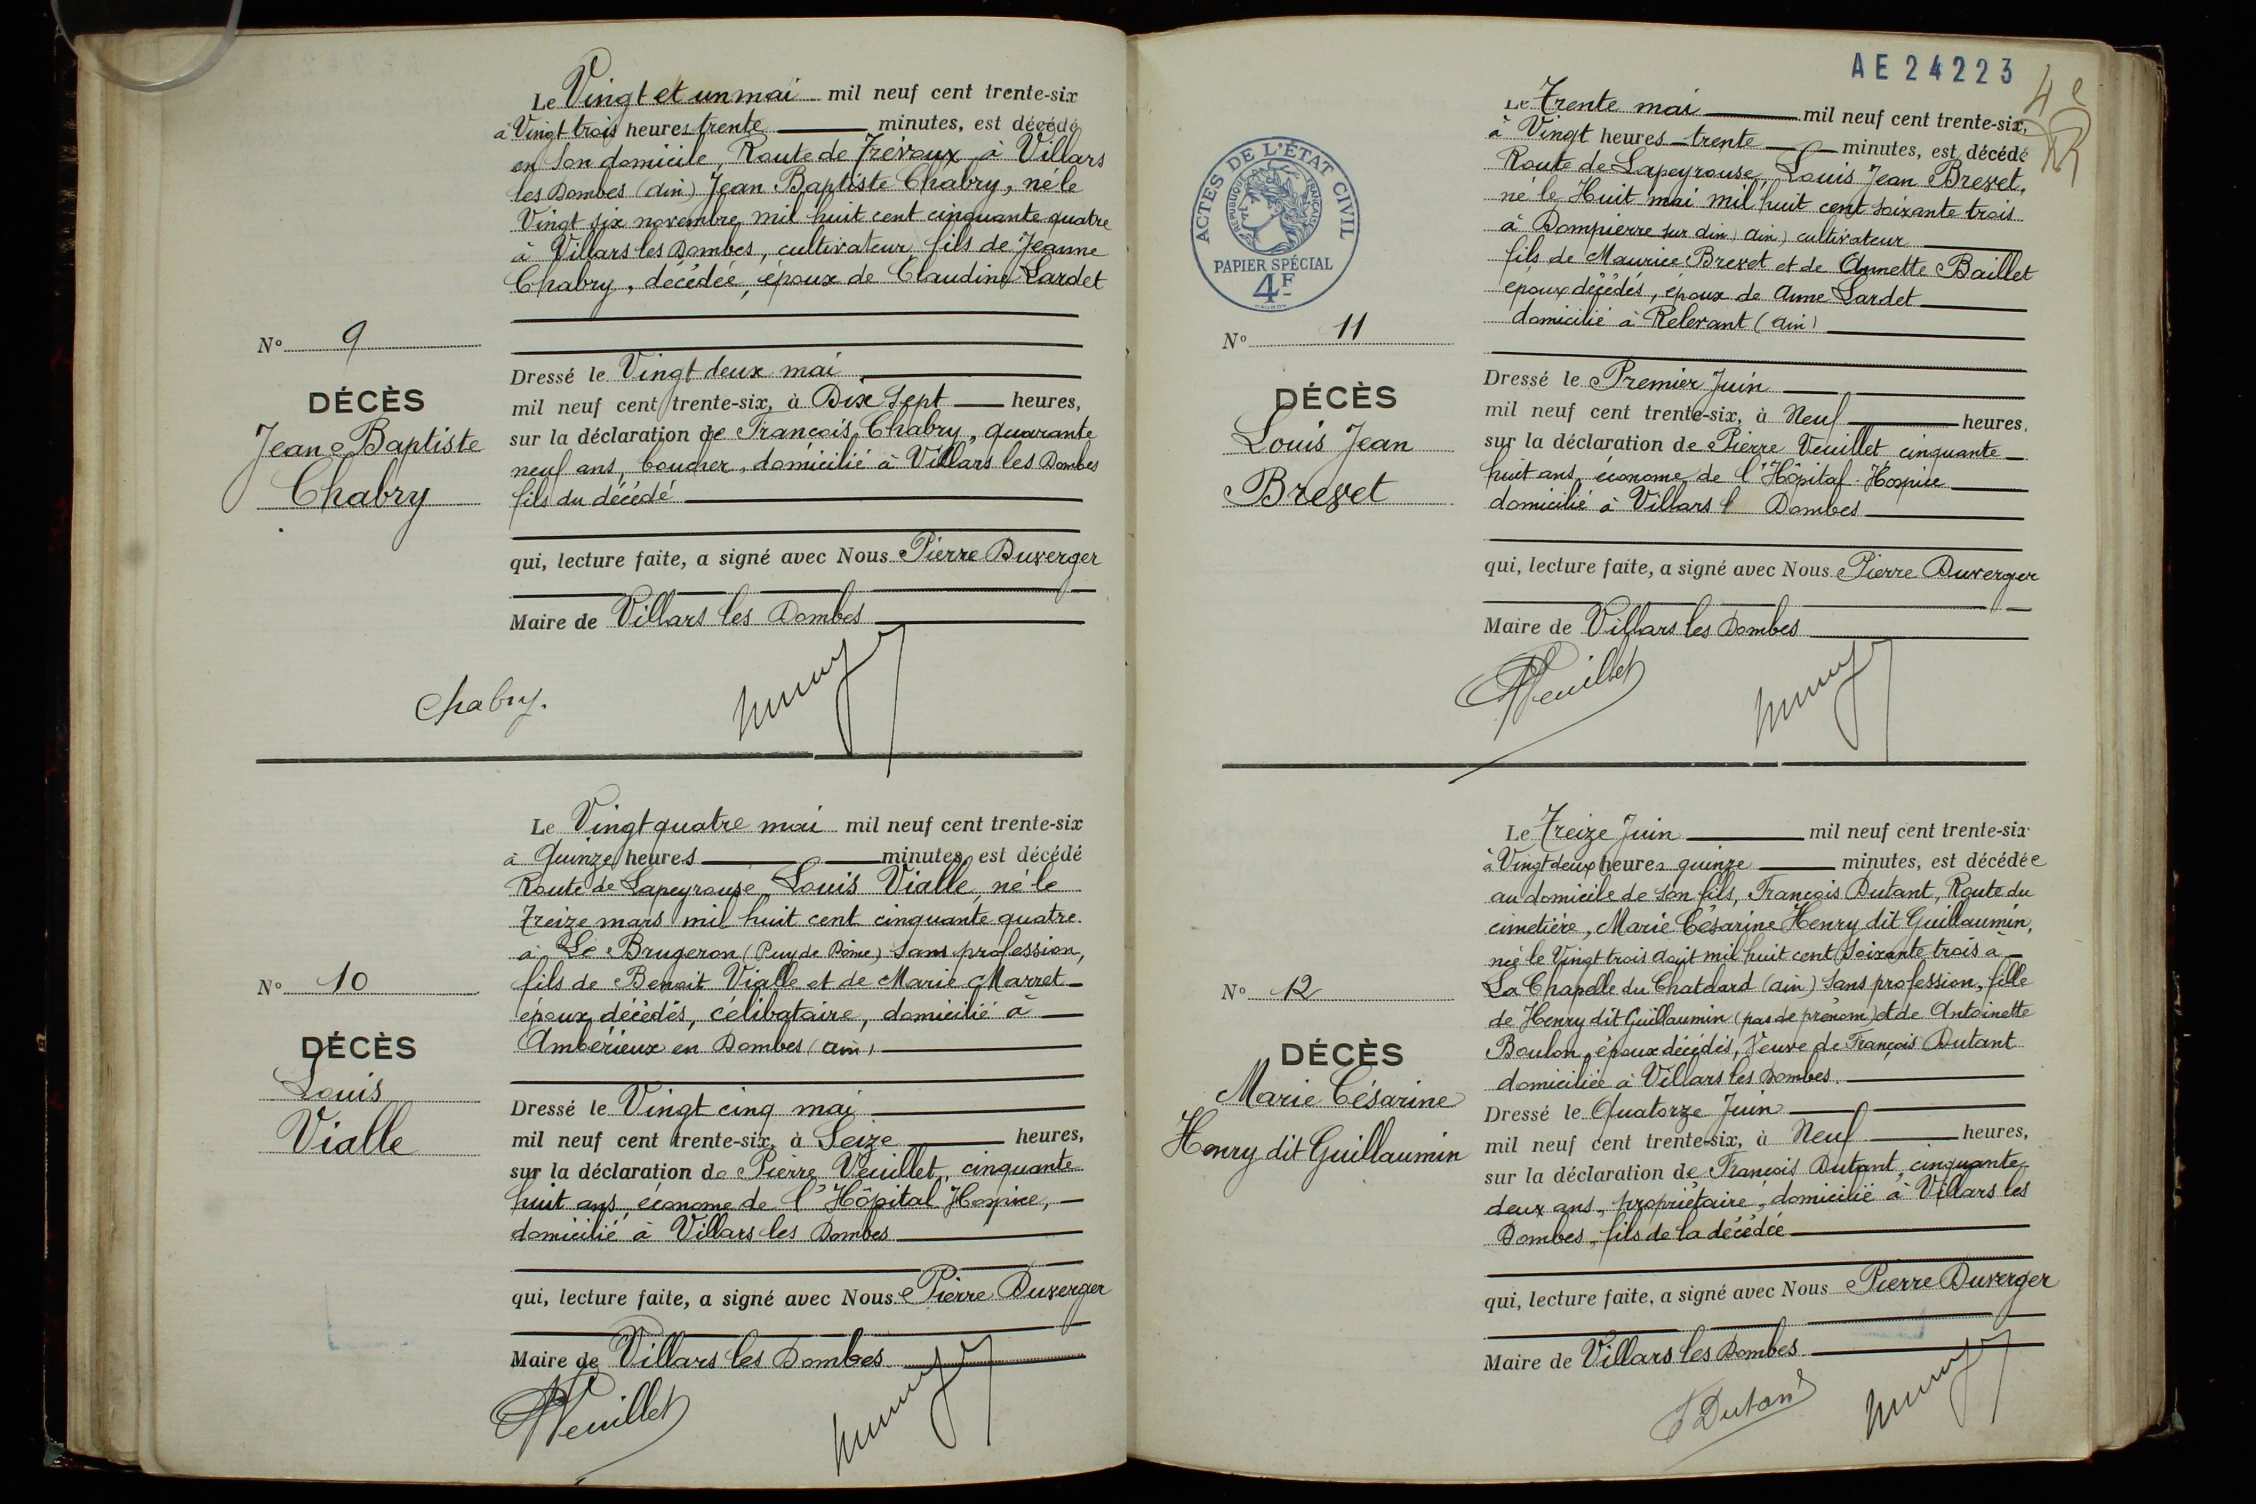 Le Vingt et un mai mil neuf cent trente-six
à Vingt trois heures trente minutes, est décédé
en son domicile, Route de Trevoux à Villars
les Dombes (ain) Jean Baptiste Chabry, né le
Vingt six novembre mil huit cent cinquante quatre
à Villars les Dombes, cultivateur, fils de Jeanne
Chabry, décédée, époux de Claudine Lardet
N° 9
DÉCÈS
Jean Baptiste
Chabry
Dressé le Vingt deux mai
mil neuf cent trente-six, à Dix Sept heures,
sur la déclaration de François Chabry, quarante
neuf ans, boucher, domicilié à Villars les Dombes
fils du décédé
qui, lecture faite, a signé avec Nous Pierre Duverger
Maire de Villars les Dombes
Chabry.
Le Vingt quatre mai mil neuf cent trente-six
à Quinze heures minutes, est décédé
Route de Lapeyrouse, Louis Vialle, né le
Treize mars mil huit cent cinquante quatre
à Le Brugeron (Puy de Dôme) sans profession,
fils de Benoit Vialle et de Marie Marret
époux décédés, célibataire, domicilié à
Ambérieux en Dombes (ain)
N° 10
DÉCÈS
Louis
Vialle
Dressé le Vingt cinq mai
mil neuf cent trente-six, à Seize heures,
sur la déclaration de Pierre Veuillet, cinquante
huit ans, économe de l'Hôpital Hospice,
domicilié à Villars les Dombes
qui, lecture faite, a signé avec Nous Pierre Duverger
Maire de Villars les Dombes
PVeuillet
AE24223
4e
ACTES DE L'ÉTAT CIVIL
RÉPUBLIQUE FRANÇAISE
PAPIER SPÉCIAL
4F
Le Trente mai mil neuf cent trente-six,
à Vingt heures trente minutes, est décédé
Route de Lapeyrouse Louis Jean Brevet,
né le Huit mai mil huit cent soixante trois
à Dompierre sur ain (ain) cultivateur
fils de Maurice Brevet et de Annette Baillet
époux décédés, époux de Anne Lardet
domicilié à Relevant (ain)
N° 11
DÉCÈS
Louis Jean
Brevet
Dressé le Premier Juin
mil neuf cent trente-six, à Neuf heures,
sur la déclaration de Pierre Veuillet cinquante
huit ans, économe de l'Hôpital-Hospice
domicilié à Villars l Dombes
qui, lecture faite, a signé avec Nous Pierre Duverger
Maire de Villars les Dombes
PVeuillet
Le Treize Juin mil neuf cent trente-six
à Vingt deux heures quinze minutes, est décédée
au domicile de son fils, François Dutant, Route du
cimetière, Marie Césarine Henry dit Guillaumin,
née le Vingt trois août mil huit cent soixante trois à
La Chapelle du Chatelard (ain) sans profession, fille
de Henry dit Guillaumin (pas de prénom) et de Antoinette
Boulon, époux décédés, Veuve de François Dutant
domiciliée à Villars les Dombes.
N° 12
DÉCÈS
Marie Césarine
Henry dit Guillaumin
Dressé le Quatorze Juin
mil neuf cent trente-six, à Neuf heures,
sur la déclaration de François Dutant, cinquante
deux ans, propriétaire, domicilié à Villars les
Dombes, fils de la décédée
qui, lecture faite, a signé avec Nous Pierre Duverger
Maire de Villars les Dombes
Dutant